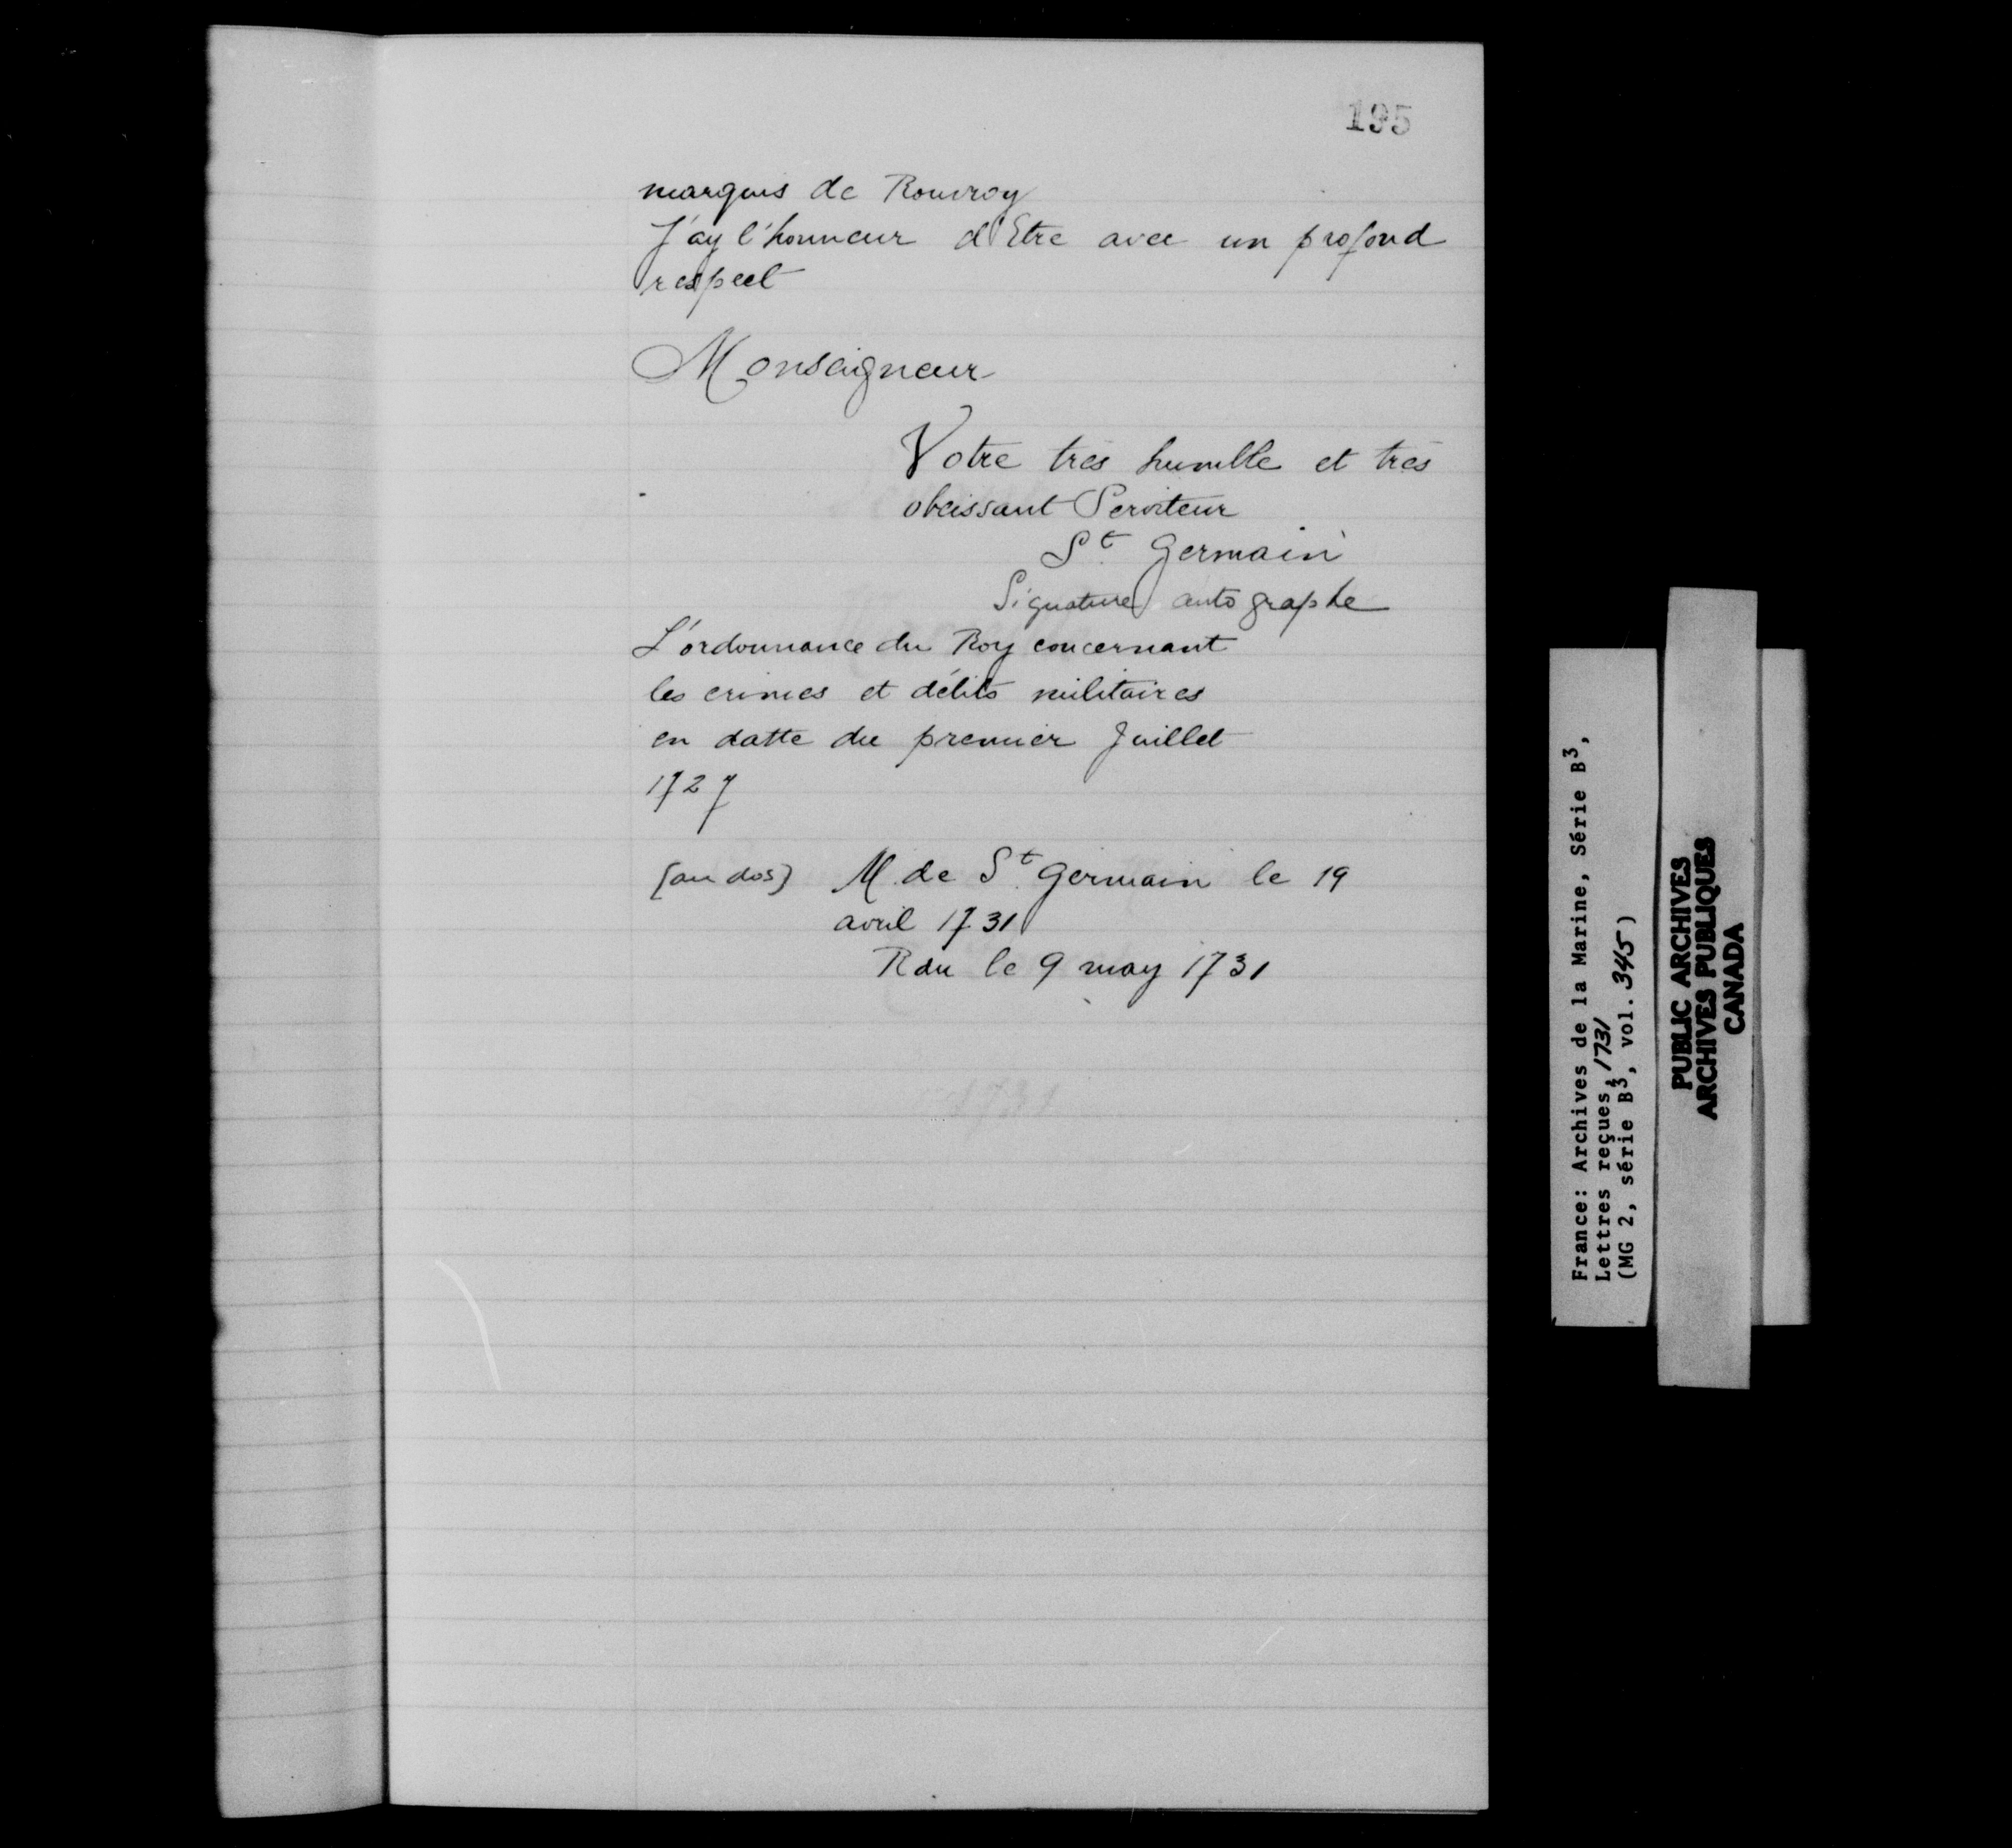 195
marquis de Rouvroy
J'ay l'honneur d'Etre avec un profond
respect
Monseigneur
Votre très humble et très
obeissant Serviteur
St Germain
Signature autographe
L'ordonnance du Roy concernant
les crimes et délits militaires
en datte du premier Juillet
1727
(au dos) M. de St Germain le 19
avril 1731
Rdu le 9 may 1731
France: Archives de la Marine, Série B3,
Lettres reçues, 1731
(MG 2, série B3, vol. 345)
PUBLIC ARCHIVES
ARCHIVES PUBLIQUES
CANADA